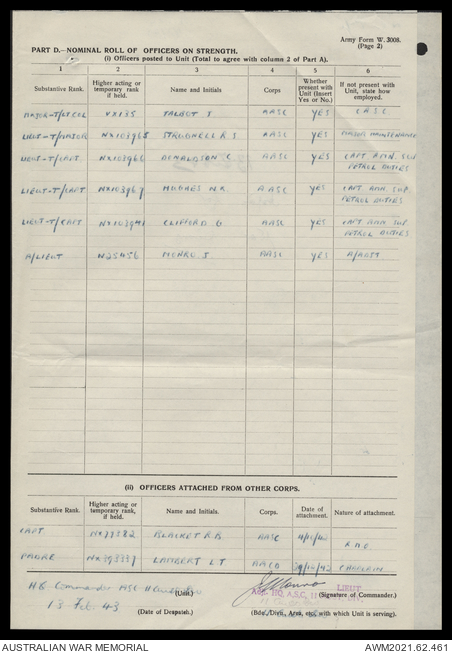 Army Form W. 3008.
(Page 2)
PART D.—NOMINAL ROLL OF OFFICERS ON STRENGTH.
(i) Officers posted to Unit (Total to agree with column 2 of Part A).
1 2 3 4 5 6
Substantive Rank. Higher acting or temporary rank if held. Name and Initials Corps Whether present with Unit (Insert Yes or No.) If not present with Unit, state how employed.
MAJOR-T/LT COL VX135 TALBOT J AASC YES C.A.S.C
LIEUT-T/MAJOR NX103965 STRUDWELL R S AASC YES MAJOR MAINTENANCE
LIEUT-T/CAPT. NX103966 DONALDSON C AASC YES CAPT AMN. SUP
PETROL DUTIES
LIEUT-T/CAPT NX103967 HUGHES N.R. AASC YES CAPT AMN SUP.
PETROL DUTIES
LIEUT-T/CAPT NX103941 CLIFFORD G AASC YES CAPT AMN SUP.
PETROL DUTIES
A/LIEUT N25456 MONRO J AASC YES A/ADJT
(ii) OFFICERS ATTACHED FROM OTHER CORPS.
Substantive Rank. Higher acting or temporary rank, if held. Name and Initials. Corps. Date of attachment. Nature of attachment.
CAPT. NX77382 BLACKET R.B AASC 4/10/42
PADRE NX393337 LAMBERT L T /42 CHAPLAIN
H.Q Commander AASC (Unit.) LIEUT (Signature of Commander.)
13 Feb 43 (Date of Despatch.) Adjt. HQ. A.S.C, 11
(Bde., Divn., Area, etc., with which Unit is serving).
AUSTRALIAN WAR MEMORIAL AWM2021.62.461